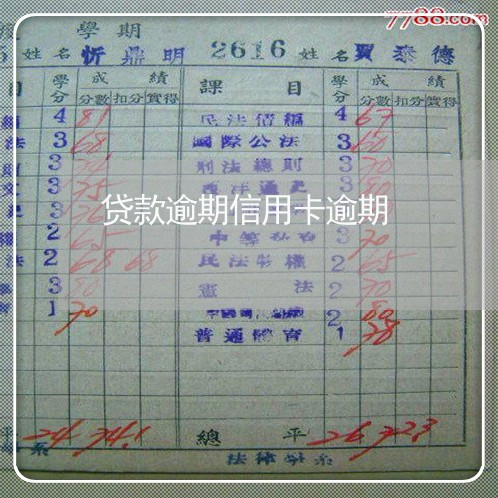 7788.com
學期
姓名 忻鼎明 2616 姓名 賈泰德
目 學分 成績 課目 學分 成績
分數 扣分 實得 分數 扣分 實得
4 81 民法債編 4 67
法 3 68 國際公法 3 60
3 刑法總則 3 70
3 75 西洋通史 3 80
貸款逾期信用卡逾期
2 65 3 70
法 2 68 68 民法物權 2 65
3 80 憲法 2 70
1 70 2 80
普通體育 1 78
平 24 74.1 總平 26 72.3
系 法律學系